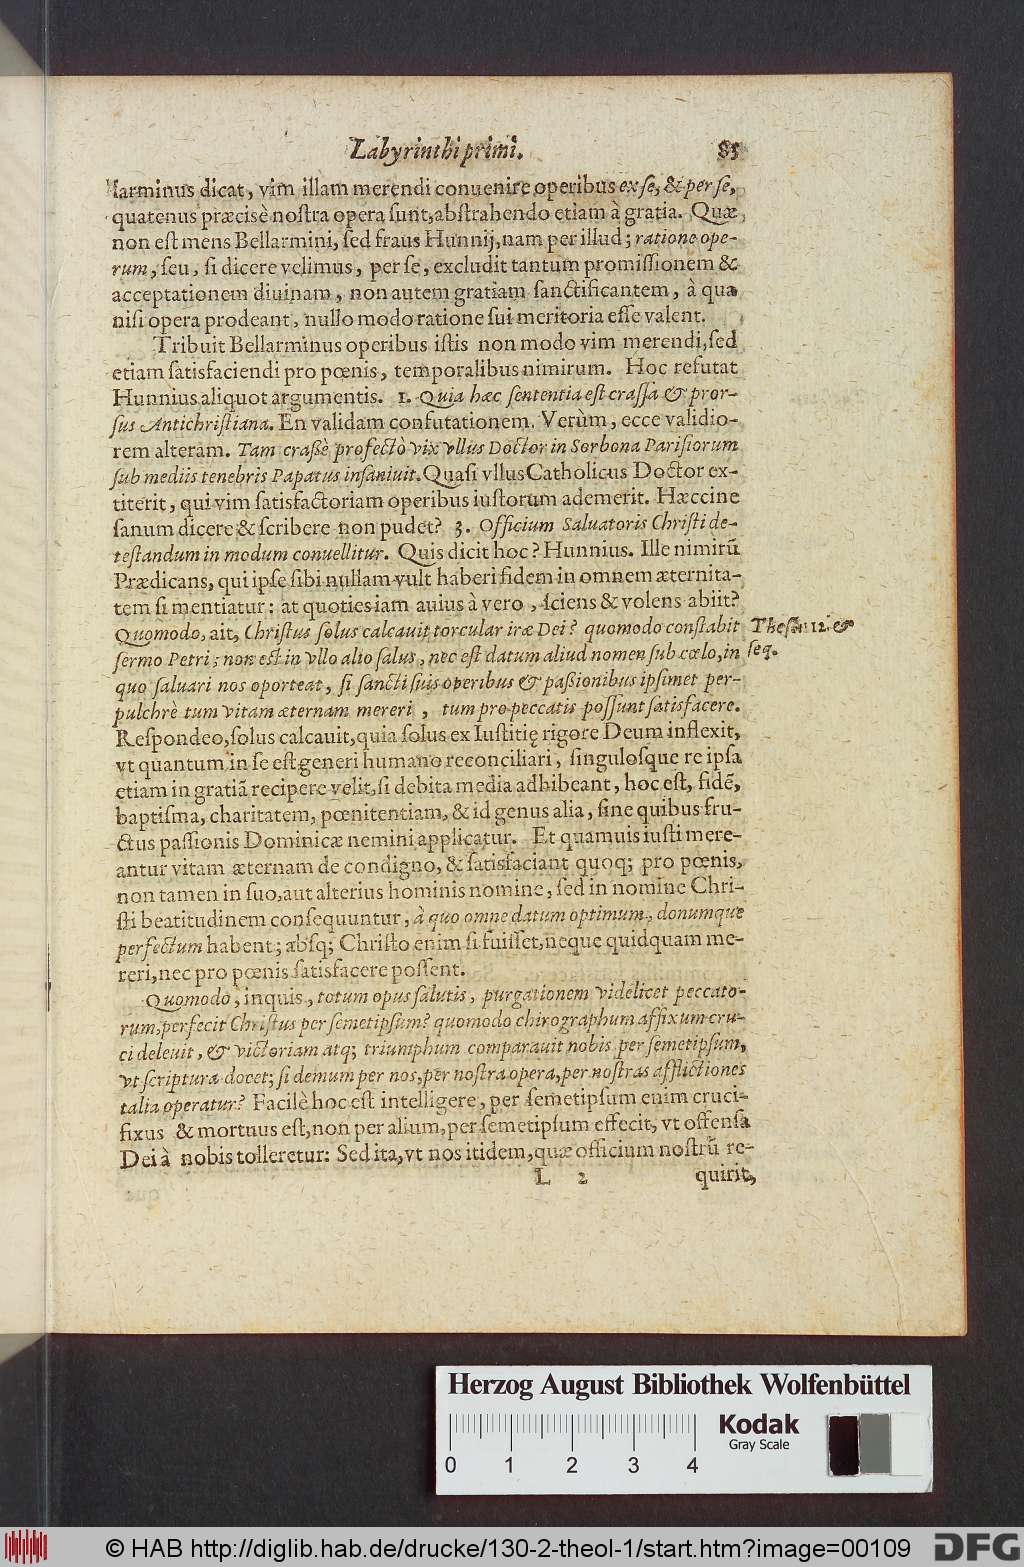 Labyrinthi primi. 85
larminus dicat, vim illam merendi conuenire operibus ex se, & per se,
quatenus præcisè nostra opera sunt, abstrahendo etiam à gratia. Quæ
non est mens Bellarmini, sed fraus Hunnij, nam per illud; ratione ope-
rum, seu, si dicere velimus, per se, excludit tantum promissionem &
acceptationem diuinam, non autem gratiam sanctificantem, à qua
nisi opera prodeant, nullo modo ratione sui meritoria esse valent.
Tribuit Bellarminus operibus istis non modo vim merendi, sed
etiam satisfaciendi pro pœnis, temporalibus nimirum. Hoc refutat
Hunnius aliquot argumentis. 1. Quia hæc sententia est crassa & pror-
sus Antichristiana. En validam confutationem. Verùm, ecce validio-
rem alteram. Tam crassè profectò vix vllus Doctor in Sorbona Parisiorum
sub mediis tenebris Papatus insaniuit. Quasi vllus Catholicus Doctor ex-
titerit, qui vim satisfactoriam operibus iustorum ademerit. Hæccine
sanum dicere & scribere non pudet? 3. Officium Saluatoris Christi de-
testandum in modum conuellitur. Quis dicit hoc? Hunnius. Ille nimirũ
Prædicans, qui ipse sibi nullam vult haberi fidem in omnem æternita-
tem si mentiatur: at quoties iam auius à vero, sciens & volens abiit?
Quomodo, ait, Christus solus calcauit torcular iræ Dei? quomodo constabit
sermo Petri; non est in vllo alio salus, nec est datum aliud nomen sub cœlo, in
quo saluari nos oporteat, si sancti suis operibus & passionibus ipsimet per-
pulchrè tum vitam æternam mereri, tum pro peccatis possunt satisfacere.
Thesi 12. &
seq.
Respondeo, solus calcauit, quia solus ex Iustitię rigore Deum inflexit,
vt quantum in se est generi humano reconciliari, singulosque re ipsa
etiam in gratiã recipere velit, si debita media adhibeant, hoc est, fidẽ,
baptisma, charitatem, pœnitentiam, & id genus alia, sine quibus fru-
ctus passionis Dominicæ nemini applicatur. Et quamuis iusti mere-
antur vitam æternam de condigno, & satisfaciant quoq; pro pœnis,
non tamen in suo, aut alterius hominis nomine, sed in nomine Chri-
sti beatitudinem consequuntur, à quo omne datum optimum, donumque
perfectum habent; absq; Christo enim si fuisset, neque quidquam me-
reri, nec pro pœnis satisfacere possent.
Quomodo, inquis, totum opus salutis, purgationem videlicet peccato-
rum, perfecit Christus per semetipsum? quomodo chirographum affixum cru-
ci deleuit, & victoriam atq; triumphum comparauit nobis per semetipsum,
vt scriptura docet; si demum per nos, per nostra opera, per nostras afflictiones
talia operatur? Facilè hoc est intelligere, per semetipsum enim cruci-
fixus & mortuus est, non per alium, per semetipsum effecit, vt offensa
Dei à nobis tolleretur: Sed ita, vt nos itidem, quæ officium nostrũ re-
L 2 quirit,
Herzog August Bibliothek Wolfenbüttel
Kodak
Gray Scale
0 1 2 3 4
© HAB http://diglib.hab.de/drucke/130-2-theol-1/start.htm?image=00109 DFG